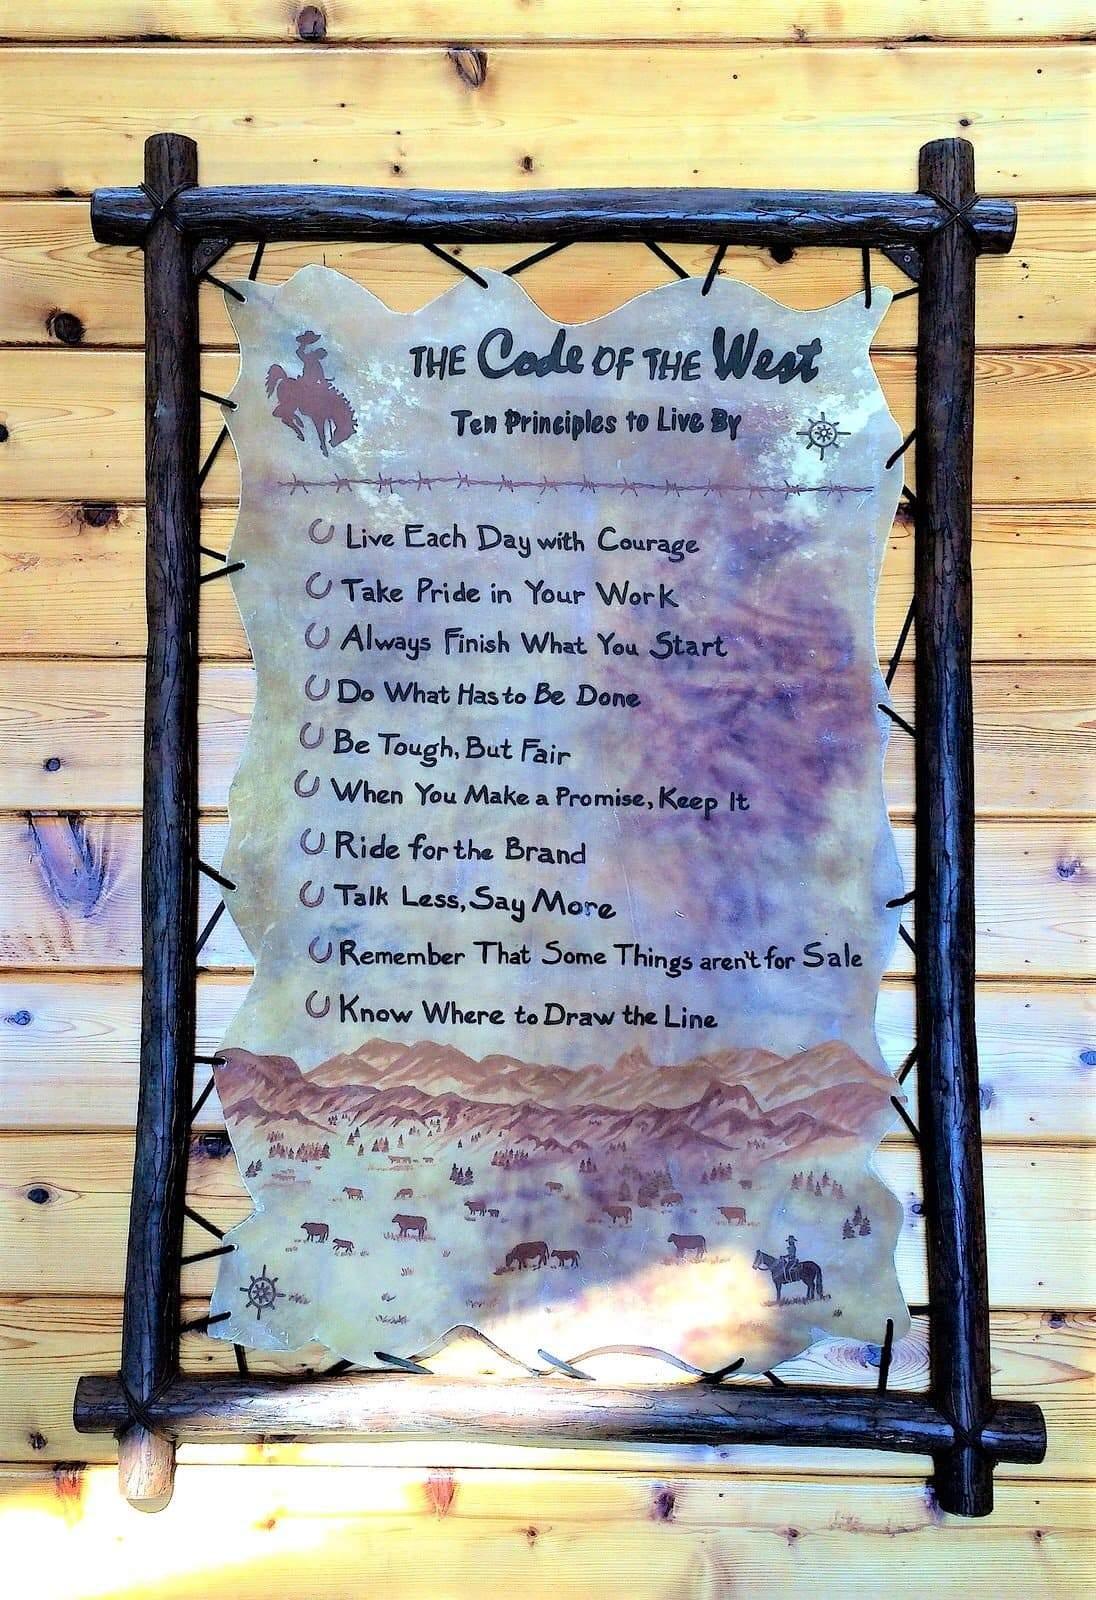 THE Code OF THE West
Ten Principles to Live By
Live Each Day with Courage
Take Pride in Your Work
Always Finish What You Start
Do What Has to Be Done
Be Tough, But Fair
When You Make a Promise, Keep It
Ride for the Brand
Talk Less, Say More
Remember That Some Things aren't for Sale
Know Where to Draw the Line